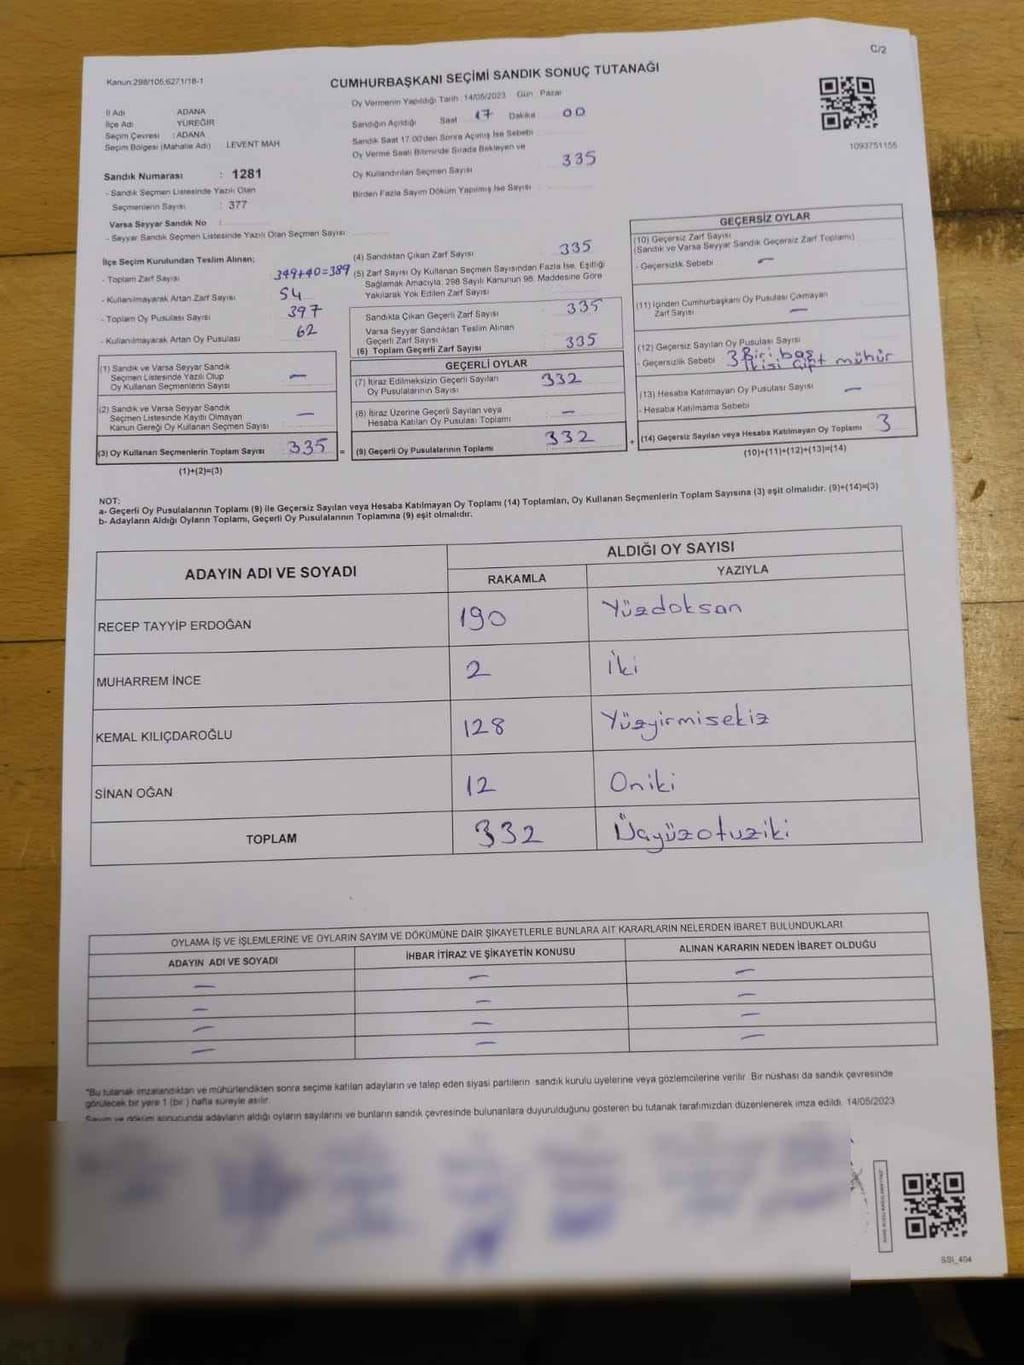 C/2
Kanun:298/105,6271/18-1
CUMHURBAŞKANI SEÇİMİ SANDIK SONUÇ TUTANAĞI
İl Adı ADANA
İlçe Adı YÜREĞİR
Seçim Çevresi : ADANA
Seçim Bölgesi (Mahalle Adı) LEVENT MAH
Sandık Numarası : 1281
- Sandık Seçmen Listesinde Yazılı Olan
Seçmenlerin Sayısı : 377
Varsa Seyyar Sandık No :
- Seyyar Sandık Seçmen Listesinde Yazılı Olan Seçmen Sayısı
Oy Vermenin Yapıldığı Tarih :14/05/2023 Gün Pazar
Sandığın Açıldığı Saat 17 Dakika 00
Sandık Saat 17.00'den Sonra Açılmış İse Sebebi
Oy Verme Saati Bitiminde Sırada Bekleyen ve
Oy Kullandırılan Seçmen Sayısı 335
Birden Fazla Sayım Döküm Yapılmış İse Sayısı
1093751156
İlçe Seçim Kurulundan Teslim Alınan;
- Toplam Zarf Sayısı 349+40=389
- Kullanılmayarak Artan Zarf Sayısı 54
- Toplam Oy Pusulası Sayısı 397
- Kullanılmayarak Artan Oy Pusulası 62
(1) Sandık ve Varsa Seyyar Sandık
Seçmen Listesinde Yazılı Olup
Oy Kullanan Seçmenlerin Sayısı —
(2) Sandık ve Varsa Seyyar Sandık
Seçmen Listesinde Kayıtlı Olmayan
Kanun Gereği Oy Kullanan Seçmen Sayısı —
(3) Oy Kullanan Seçmenlerin Toplam Sayısı 335 =
(1)+(2)=(3)
(4) Sandıktan Çıkan Zarf Sayısı 335
(5) Zarf Sayısı Oy Kullanan Seçmen Sayısından Fazla İse, Eşitliği
Sağlamak Amacıyla, 298 Sayılı Kanunun 98. Maddesine Göre
Yakılarak Yok Edilen Zarf Sayısı
Sandıkta Çıkan Geçerli Zarf Sayısı 335
Varsa Seyyar Sandıktan Teslim Alınan
Geçerli Zarf Sayısı
(6) Toplam Geçerli Zarf Sayısı 335
GEÇERLİ OYLAR
(7) İtiraz Edilmeksizin Geçerli Sayılan
Oy Pusulalarının Sayısı 332
(8) İtiraz Üzerine Geçerli Sayılan veya
Hesaba Katılan Oy Pusulası Toplamı —
(9) Geçerli Oy Pusulalarının Toplamı 332 +
GEÇERSİZ OYLAR
(10) Geçersiz Zarf Sayısı
(Sandık ve Varsa Seyyar Sandık Geçersiz Zarf Toplamı)
- Geçersizlik Sebebi —
(11) İçinden Cumhurbaşkanı Oy Pusulası Çıkmayan
Zarf Sayısı —
(12) Geçersiz Sayılan Oy Pusulası Sayısı
- Geçersizlik Sebebi 3 Biri boş
İkisi çift mühür
(13) Hesaba Katılmayan Oy Pusulası Sayısı —
- Hesaba Katılmama Sebebi
(14) Geçersiz Sayılan veya Hesaba Katılmayan Oy Toplamı 3
(10)+(11)+(12)+(13)=(14)
NOT:
a- Geçerli Oy Pusulalarının Toplamı (9) ile Geçersiz Sayılan veya Hesaba Katılmayan Oy Toplamı (14) Toplamları, Oy Kullanan Seçmenlerin Toplam Sayısına (3) eşit olmalıdır. (9)+(14)=(3)
b- Adayların Aldığı Oyların Toplamı, Geçerli Oy Pusulalarının Toplamına (9) eşit olmalıdır.
ADAYIN ADI VE SOYADI
ALDIĞI OY SAYISI
RAKAMLA YAZIYLA
RECEP TAYYİP ERDOĞAN 190 Yüzdoksan
MUHARREM İNCE 2 İki
KEMAL KILIÇDAROĞLU 128 Yüzyirmisekiz
SİNAN OĞAN 12 Oniki
TOPLAM 332 Üçyüzotuziki
OYLAMA İŞ VE İŞLEMLERİNE VE OYLARIN SAYIM VE DÖKÜMÜNE DAİR ŞİKAYETLERLE BUNLARA AİT KARARLARIN NELERDEN İBARET BULUNDUKLARI
ADAYIN ADI VE SOYADI İHBAR İTİRAZ VE ŞİKAYETİN KONUSU ALINAN KARARIN NEDEN İBARET OLDUĞU
— — —
— — —
— — —
— — —
*Bu tutanak imzalandıktan ve mühürlendikten sonra seçime katılan adayların ve talep eden siyasi partilerin sandık kurulu üyelerine veya gözlemcilerine verilir. Bir nüshası da sandık çevresinde
görülecek bir yere 1 (bir) hafta süreyle asılır.
Sayım ve döküm sonucunda adayların aldığı oyların sayılarını ve bunların sandık çevresinde bulunanlara duyurulduğunu gösteren bu tutanak tarafımızdan düzenlenerek imza edildi. 14/05/2023
SSI_404